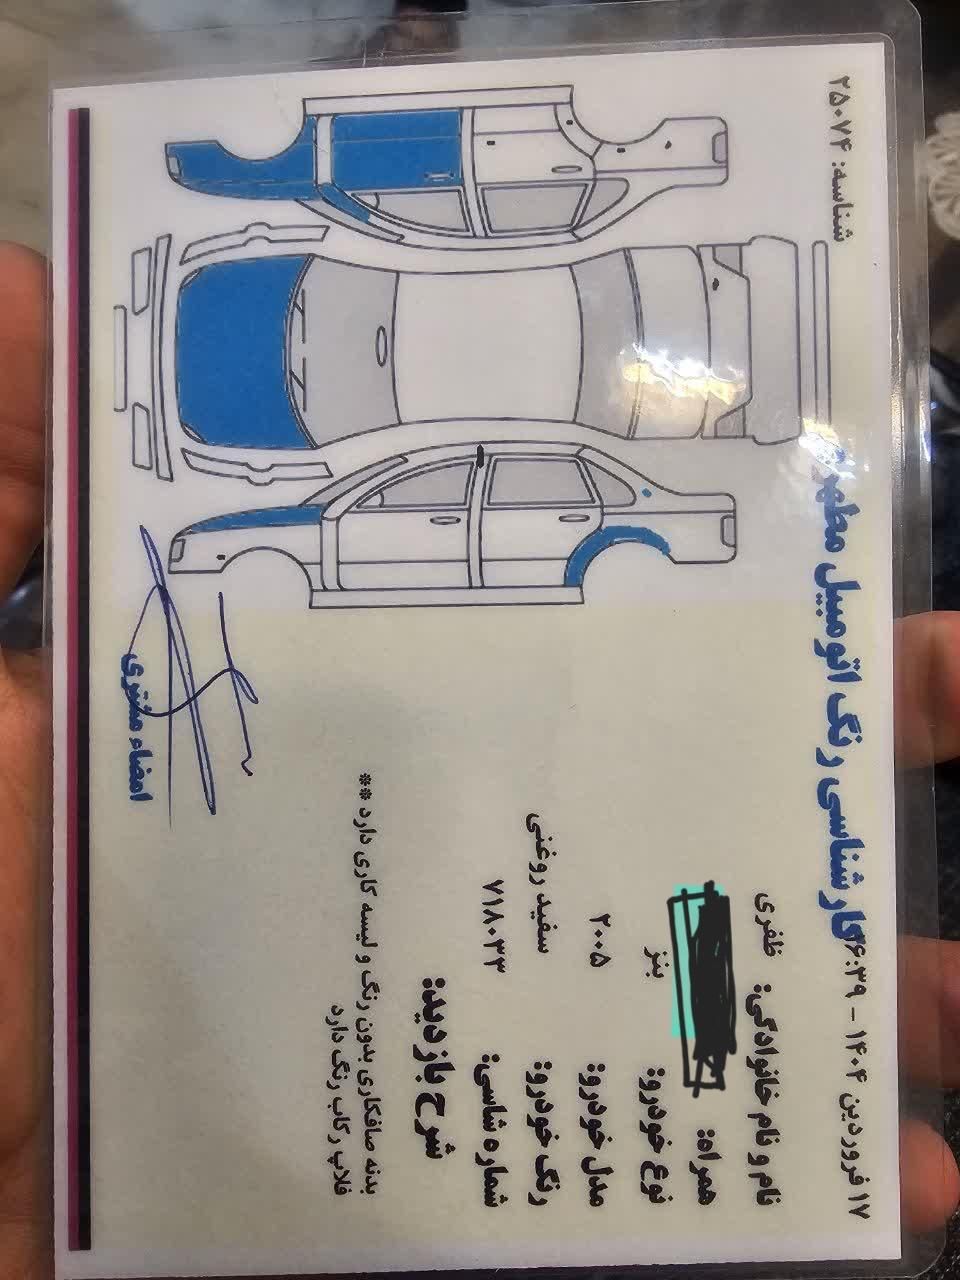 شناسه: ۲۵۰۷۴
کارشناسی رنگ اتومبیل
۱۷ فروردین ۱۴۰۴ - ۱۶:۳۹
نام و نام خانوادگی: ظفری
همراه:
نوع خودرو: بنز
مدل خودرو: ۲۰۰۵
رنگ خودرو: سفید روغنی
شماره شاسی: ۷۱۸۰۳۳
شرح بازدید:
بدنه صافکاری بدون رنگ و لیسه کاری دارد **
فلاپ رکاب رنگ دارد
امضاء مشتری